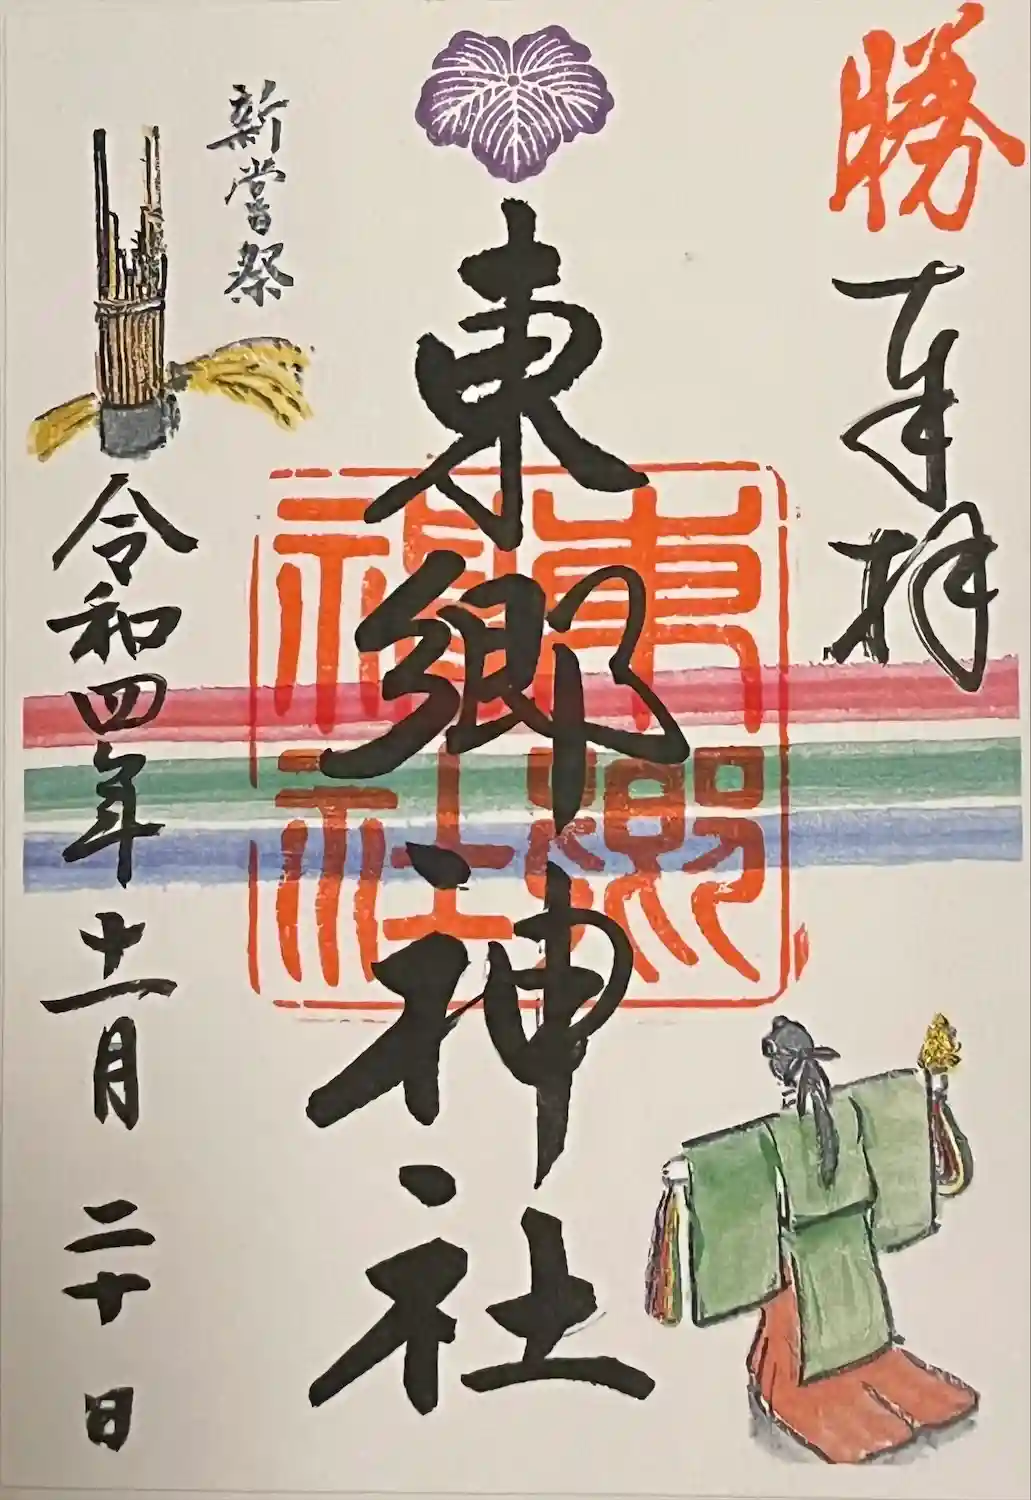 勝
奉拝
東郷神社
東郷
神社
新嘗祭
令和四年十一月二十日